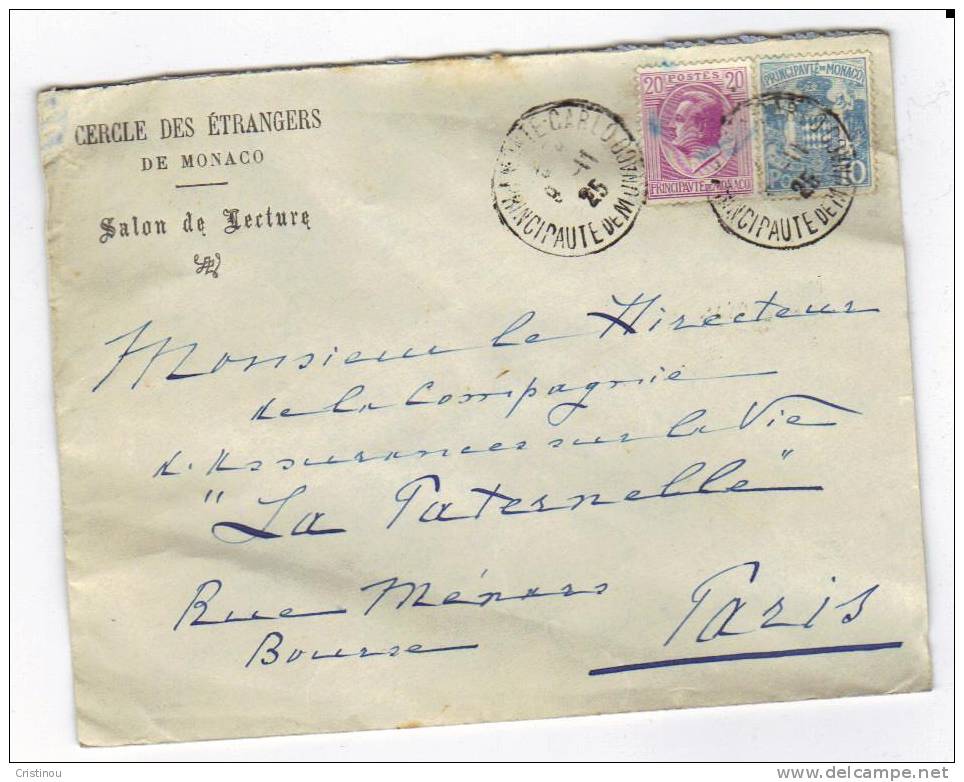 CERCLE DES ÉTRANGERS
DE MONACO
Salon de Lecture
20 POSTES 20
PRINCIPAVTÉ DE MONACO
PRINCIPAVTÉ DE MONACO
MONTE-CARLO CONDAMINE
-11
25
PRINCIPAUTE DE M
-11
25
PRINCIPAUTE DE M
Monsieur le Directeur
de la Compagnie
d'Assurances sur la Vie
"La Paternelle"
Rue Ménars
Bourse
Paris
Cristinou
www.delcampe.net